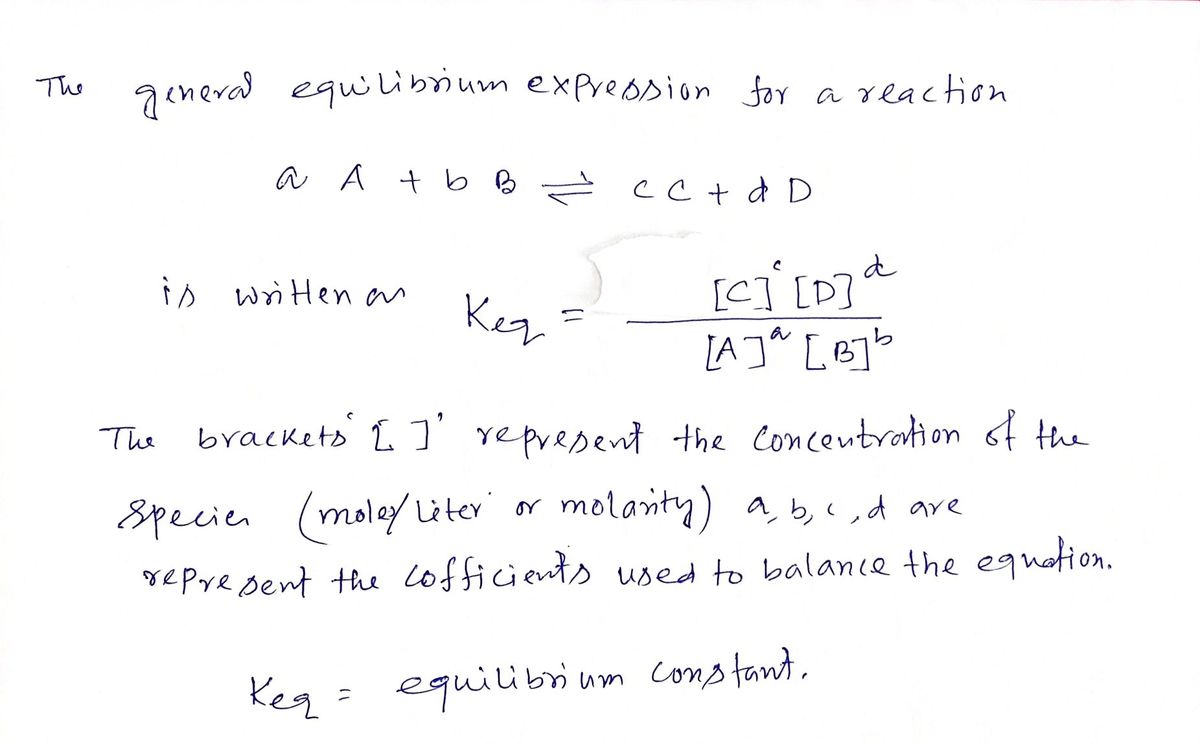 The general equilibrium expression for a reaction
a A + b B ⇌ c C + d D
is written as Keq = [C]^c [D]^d / [A]^a [B]^b
The brackets '[ ]' represent the concentration of the
species (moles/liter or molarity) a, b, c, d are
represent the cofficients used to balance the equation.
Keq = equilibrium constant.